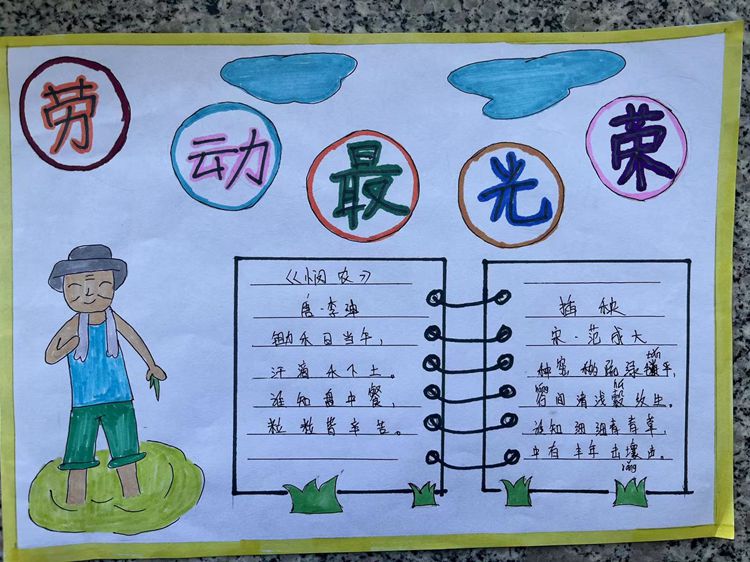 劳动最光荣
《悯农》
唐·李绅
锄禾日当午，
汗滴禾下土。
谁知盘中餐，
粒粒皆辛苦。
插秧
宋·范成大
种密移疏绿毯平，
间清浅縠纹生。
谁知细细青青草，
中有丰年击壤声。